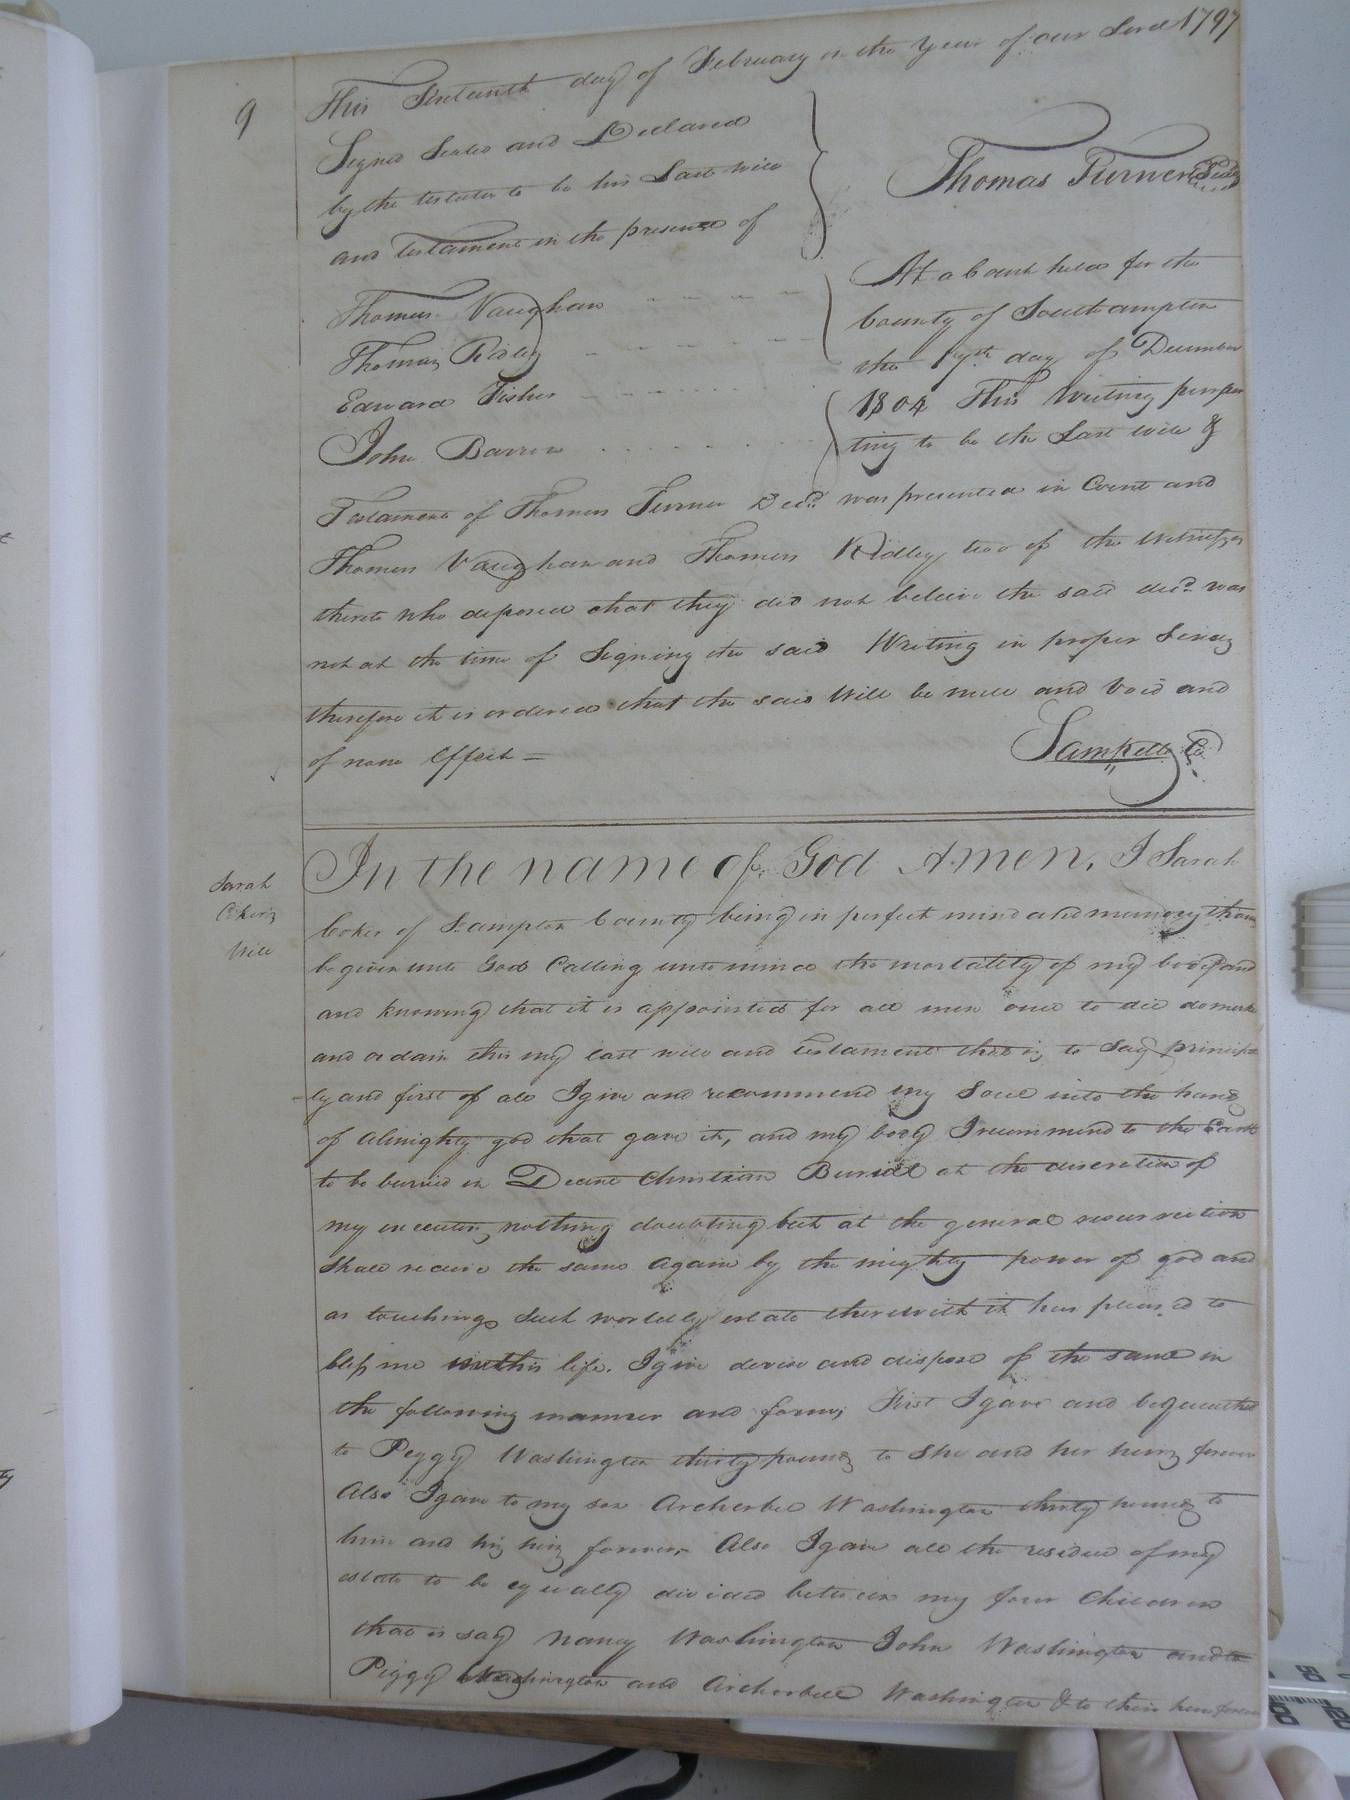 9
This Sixteenth day of February in the Year of our Lord 1797
Signed Sealed and Declared
by the testator to be his Last will
and testament in the presence of
Thomas Turner
Thomas Vaughan
Thomas Ridley
Edward Fisher
John Barrow
At a Court held for the
County of Southampton
the day of December
1804 This Writing purpor
ting to be the Last will &
Testament of Thomas Turner Decd. was presented in Court and
Thomas Vaughan and Thomas Ridley two of the Witnesses
thereto who deposed that they did not believe the said decd. was
not at the time of Signing the said Writing in proper Senses
therefore it is ordered that the said Will be null and Void and
of none Effect =
Saml Kello C.
Sarah
Will
In the name of God Amen, I Sarah
Coker of S.ampton County being in perfect mind and memory thanks
be given unto God Calling unto mind the mortality of my body and
and knowing that it is appointed for all men once to die do make
and ordain this my last will and testament that is to Say principal
ly and first of all I give and recommend my Soul into the hands
of Almighty god that gave it, and my body I recommend to the Earth
to be buried in Decent Christian Burial at the discretion of
my executors, nothing doubting but at the general resurrection
Shall receive the same again by the mighty power of god and
as touching Such worldly estate therewith it has pleased to
bless me in this life. I give devise and dispose of the same in
the following manner and form; First I gave and bequeathed
to Peggy Washington thirty pounds to She and her heirs forever
Also I gave to my son Archerbel Washington thirty pounds to
him and his heirs forever, Also I gave all the residue of my
estate to be equally divided between my four Children
that is say Nancy Washington John Washington and to
Peggy Washington and Archerbell Washington & to their heirs forever